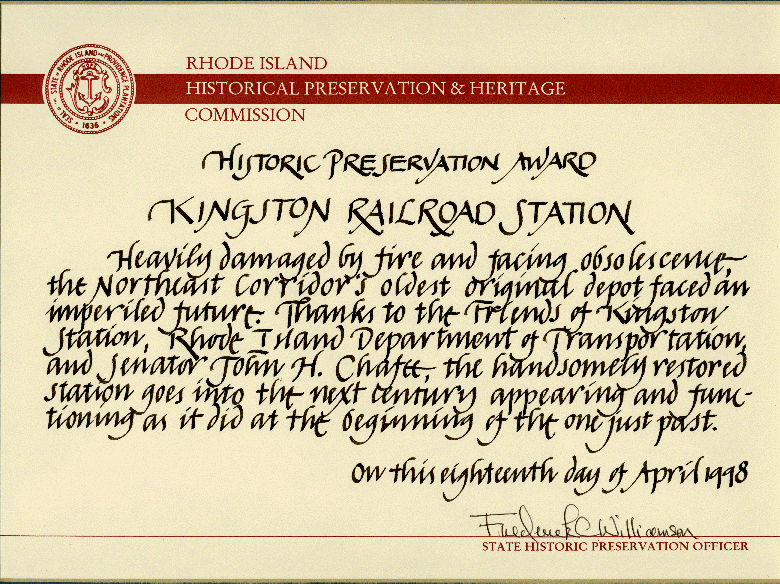 STATE OF RHODE ISLAND AND PROVIDENCE PLANTATIONS
SEAL OF
1636
HOPE
RHODE ISLAND
HISTORICAL PRESERVATION & HERITAGE
COMMISSION
HISTORIC PRESERVATION AWARD
KINGSTON RAILROAD STATION
Heavily damaged by fire and facing obsolescence,
the Northeast Corridor's oldest original depot faced an
imperiled future. Thanks to the Friends of Kingston
Station, Rhode Island Department of Transportation,
and Senator John H. Chafee, the handsomely restored
station goes into the next century appearing and func-
tioning as it did at the beginning of the one just past.
On this eighteenth day of April 1998
Frederick C. Williamson
STATE HISTORIC PRESERVATION OFFICER